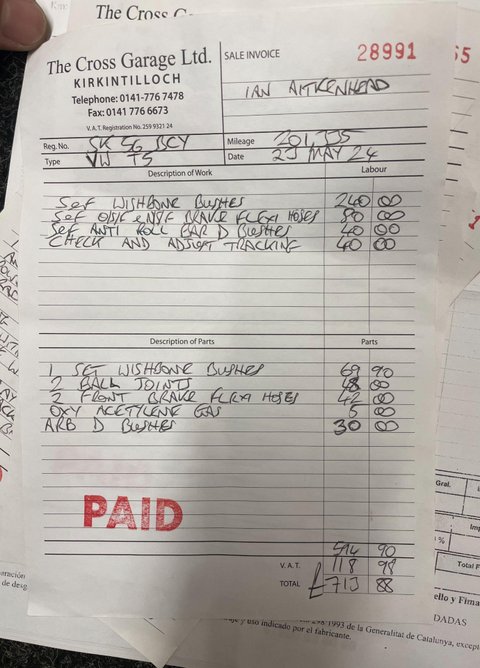 The Cross Ga
The Cross Garage Ltd.
KIRKINTILLOCH
Telephone: 0141-776 7478
Fax: 0141 776 6673
V.A.T. Registration No. 259 9321 24
SALE INVOICE
28991
55
IAN AITKENHEAD
Reg. No. SK 56 BCY
Mileage 201
Type VW T5
Date 23 MAY 24
Description of Work Labour
SEF WISHBONE BUSHES 240 00
SEF O/S/F & N/S/F BRAKE FLEXI HOSES 80 00
SEF ANTI ROLL BAR D BUSHES 40 00
CHECK AND ADJUST TRACKING 40 00
Description of Parts Parts
1 SET WISHBONE BUSHES 69 90
2 BALL JOINTS 48 00
2 FRONT BRAKE FLEXI HOSES 42 00
OXY ACETYLENE GAS 5 00
ARB D BUSHES 30 00
PAID
594 90
V. A. T. 118 98
TOTAL £713 88
Gral.
%
Total F
ello y Firma
DADAS
298/1993 de la Generalitat de Catalunya, excepto
je y uso indicado por el fabricante.
aración
de desg